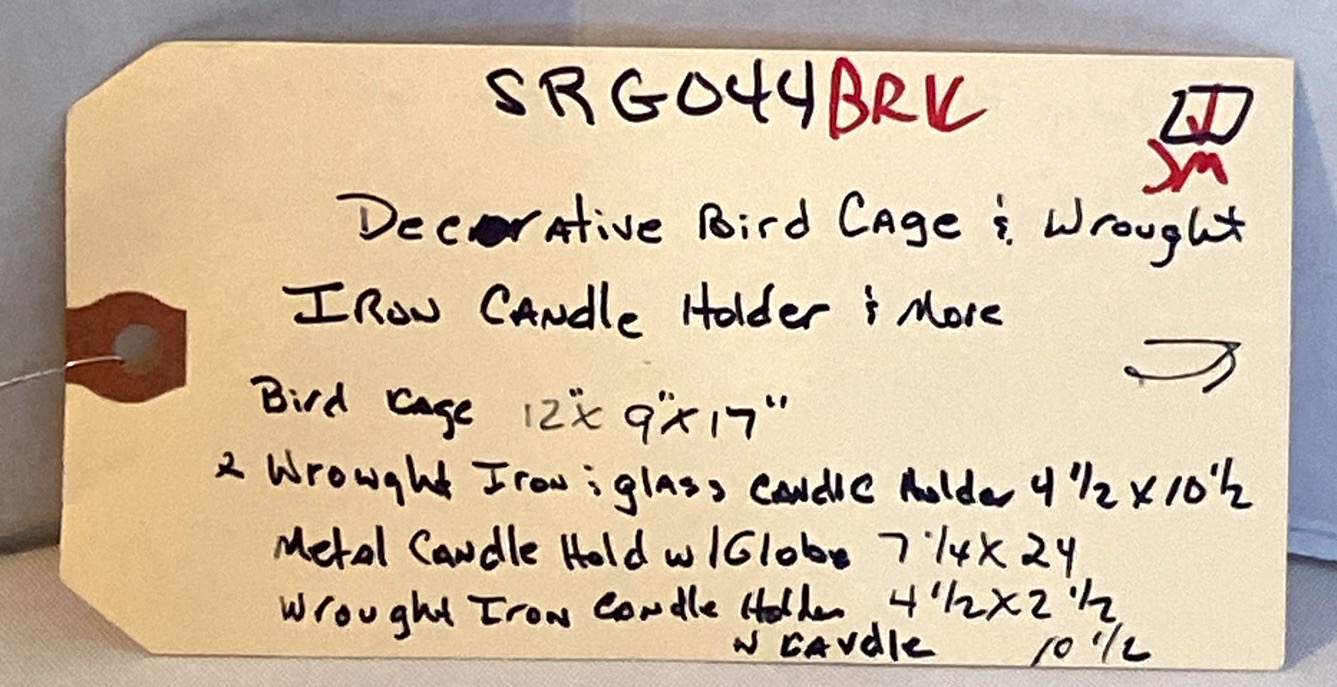 SRG044BRK
JM
Decorative Bird Cage & Wrought
Iron Candle Holder & More
Bird Cage 12"x 9"x17"
2 Wrought Iron & glass Candle Holder 4 1/2 x 10 1/2
Metal Candle Hold w/Globe 7 1/4 x 24
Wrought Iron Candle Holder 4 1/2 x 2 1/2
W Candle 10 1/2